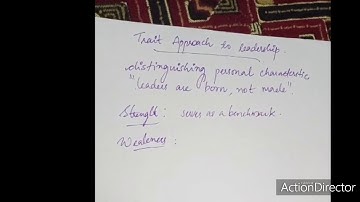 Trait Approach to leadership.
distinguishing personal characteristic
"leaders are born, not made".
Strength: serves as a benchmark.
Weakness:
ActionDirector